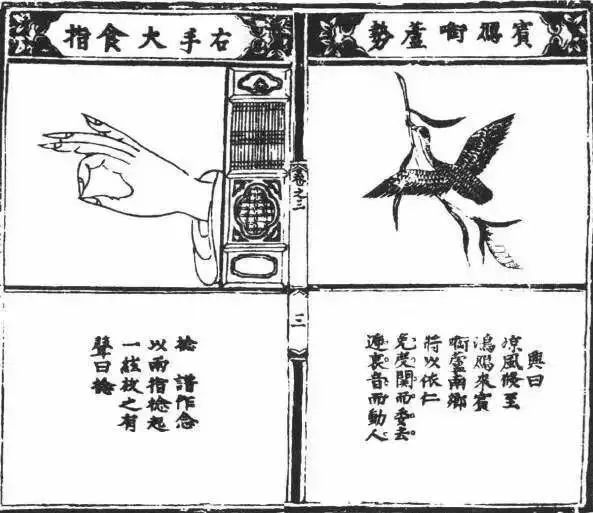 賓鴈啣蘆勢
興曰
凉風倐至
鴻鴈來賓
啣蘆南鄉
將以依仁
免度關而委去。
遞哀音而動人。
卷之三
三
右手大食指
捻 譜作念
以兩指捻起
一絃放之有
聲曰捻